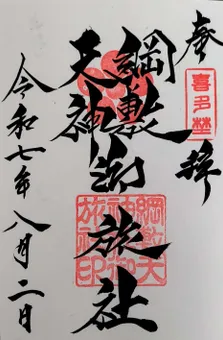 奉拝
喜多埜
綱敷天神御旅社
綱敷天神御旅社印
令和七年八月二日